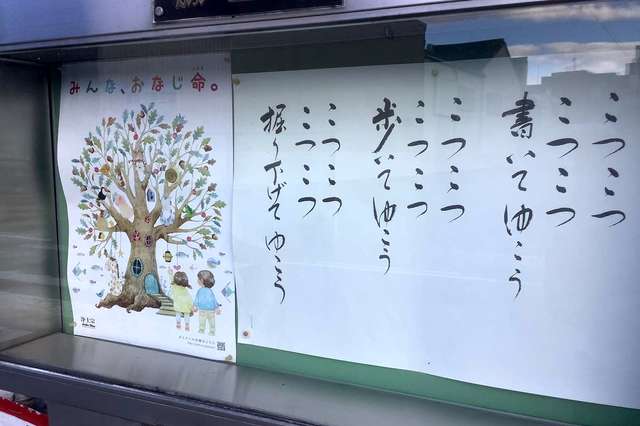 みんな、おなじ命。
こつこつ
こつこつ
書いてゆこう
こつこつ
こつこつ
歩いてゆこう
こつこつ
こつこつ
掘り下げてゆこう
浄土宗